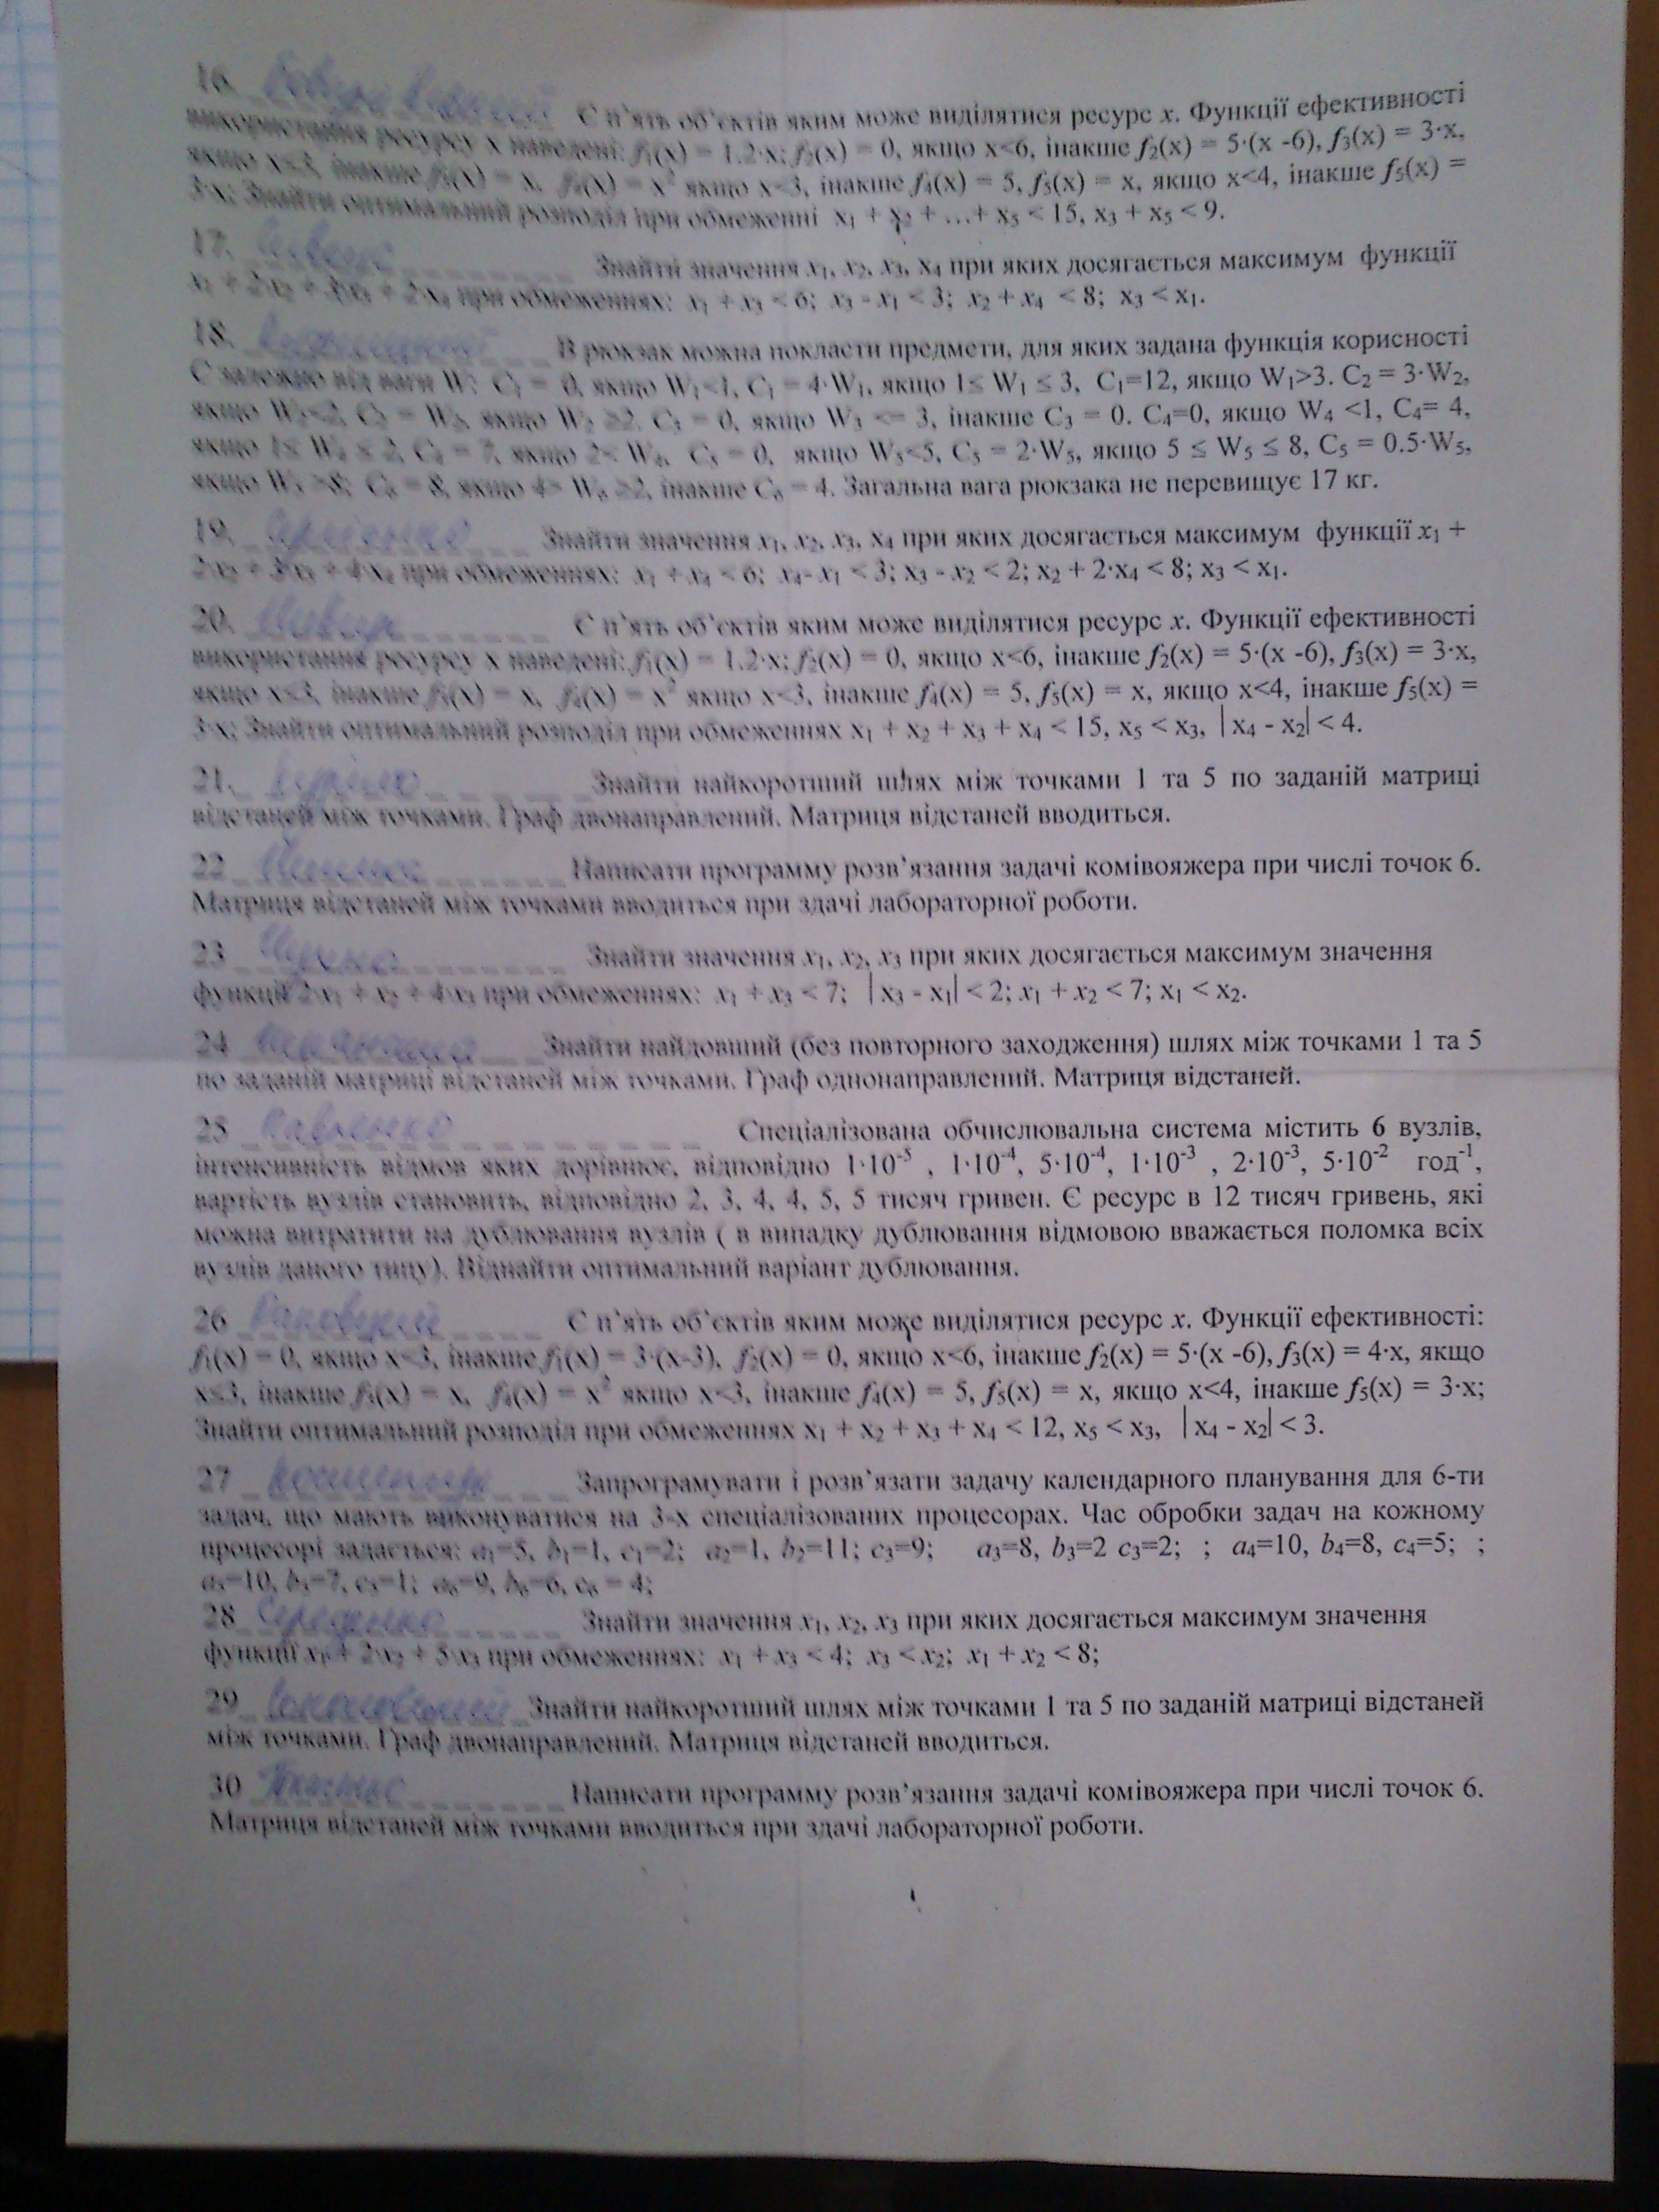 16. Є п'ять об'єктів яким може виділятися ресурс x. Функції ефективності
використання ресурсу x наведені: f1(x) = 1.2·x; f2(x) = 0, якщо x<6, інакше f2(x) = 5·(x -6), f3(x) = 3·x,
якщо x≤3, інакше f3(x) = x, f4(x) = x² якщо x<3, інакше f4(x) = 5, f5(x) = x, якщо x<4, інакше f5(x) =
3·x; Знайти оптимальний розподіл при обмеженні x1 + x2 + ...+ x5 < 15, x3 + x5 < 9.
17. Знайти значення x1, x2, x3, x4 при яких досягається максимум функції
при обмеженнях: x3 - x1 < 3; x2 + x4 < 8; x3 < x1.
18. В рюкзак можна покласти предмети, для яких задана функція корисності
С залежно від ваги W: C1 = 0, якщо W1<1, C1 = 4·W1, якщо 1≤ W1 ≤ 3, C1=12, якщо W1>3. C2 = 3·W2,
якщо W2<2, C2 = W2, якщо W2 ≥2. C3 = 0, якщо W3 <= 3, інакше C3 = 0. C4=0, якщо W4 <1, C4= 4,
якщо 1≤ W4 ≤ 2, C4 = 7, якщо 2< W4, C5 = 0, якщо W5<5, C5 = 2·W5, якщо 5 ≤ W5 ≤ 8, C5 = 0.5·W5,
якщо W5 >8; C6 = 8, якщо 4> W6 ≥2, інакше C6 = 4. Загальна вага рюкзака не перевищує 17 кг.
19. Знайти значення x1, x2, x3, x4 при яких досягається максимум функції x1 +
2·x2 + 3·x3 + 4·x4 при обмеженнях: x1 + x4 < 6; x4- x1 < 3; x3 - x2 < 2; x2 + 2·x4 < 8; x3 < x1.
20. Є п'ять об'єктів яким може виділятися ресурс x. Функції ефективності
використання ресурсу x наведені: f1(x) = 1.2·x; f2(x) = 0, якщо x<6, інакше f2(x) = 5·(x -6), f3(x) = 3·x,
якщо x≤3, інакше f3(x) = x, f4(x) = x² якщо x<3, інакше f4(x) = 5, f5(x) = x, якщо x<4, інакше f5(x) =
3·x; Знайти оптимальний розподіл при обмеженнях x1 + x2 + x3 + x4 < 15, x5 < x3, | x4 - x2| < 4.
21. Знайти найкоротший шлях між точками 1 та 5 по заданій матриці
відстаней між точками. Граф двонаправлений. Матриця відстаней вводиться.
22 Написати программу розв'язання задачі комівояжера при числі точок 6.
Матриця відстаней між точками вводиться при здачі лабораторної роботи.
23 Знайти значення x1, x2, x3 при яких досягається максимум значення
функції 2·x1 + x2 + 4·x3 при обмеженнях: x1 + x3 < 7; | x3 - x1| < 2; x1 + x2 < 7; x1 < x2.
24 Знайти найдовший (без повторного заходження) шлях між точками 1 та 5
по заданій матриці відстаней між точками. Граф однонаправлений. Матриця відстаней.
25 Спеціалізована обчислювальна система містить 6 вузлів,
інтенсивність відмов яких дорівнює, відповідно 1·10⁻⁵ , 1·10⁻⁴, 5·10⁻⁴, 1·10⁻³ , 2·10⁻³, 5·10⁻² год⁻¹,
вартість вузлів становить, відповідно 2, 3, 4, 4, 5, 5 тисяч гривен. Є ресурс в 12 тисяч гривень, які
можна витратити на дублювання вузлів ( в випадку дублювання відмовою вважається поломка всіх
вузлів даного типу). Віднайти оптимальний варіант дублювання.
26 Є п'ять об'єктів яким може виділятися ресурс x. Функції ефективності:
f1(x) = 0, якщо x<3, інакше f1(x) = 3·(x-3), f2(x) = 0, якщо x<6, інакше f2(x) = 5·(x -6), f3(x) = 4·x, якщо
x≤3, інакше f3(x) = x, f4(x) = x² якщо x<3, інакше f4(x) = 5, f5(x) = x, якщо x<4, інакше f5(x) = 3·x;
Знайти оптимальний розподіл при обмеженнях x1 + x2 + x3 + x4 < 12, x5 < x3, | x4 - x2| < 3.
27 Запрограмувати і розв'язати задачу календарного планування для 6-ти
задач, що мають виконуватися на 3-х спеціалізованих процесорах. Час обробки задач на кожному
процесорі задається: a1=5, b1=1, c1=2; a2=1, b2=11; c3=9; a3=8, b3=2 c3=2; ; a4=10, b4=8, c4=5; ;
a5=10, b5=7, c5=1; a6=9, b6=6, c6 = 4;
28 Знайти значення x1, x2, x3 при яких досягається максимум значення
функції x1 + 2·x2 + 5·x3 при обмеженнях: x1 + x3 < 4; x3 < x2; x1 + x2 < 8;
29 Знайти найкоротший шлях між точками 1 та 5 по заданій матриці відстаней
між точками. Граф двонаправлений. Матриця відстаней вводиться.
30 Написати программу розв'язання задачі комівояжера при числі точок 6.
Матриця відстаней між точками вводиться при здачі лабораторної роботи.